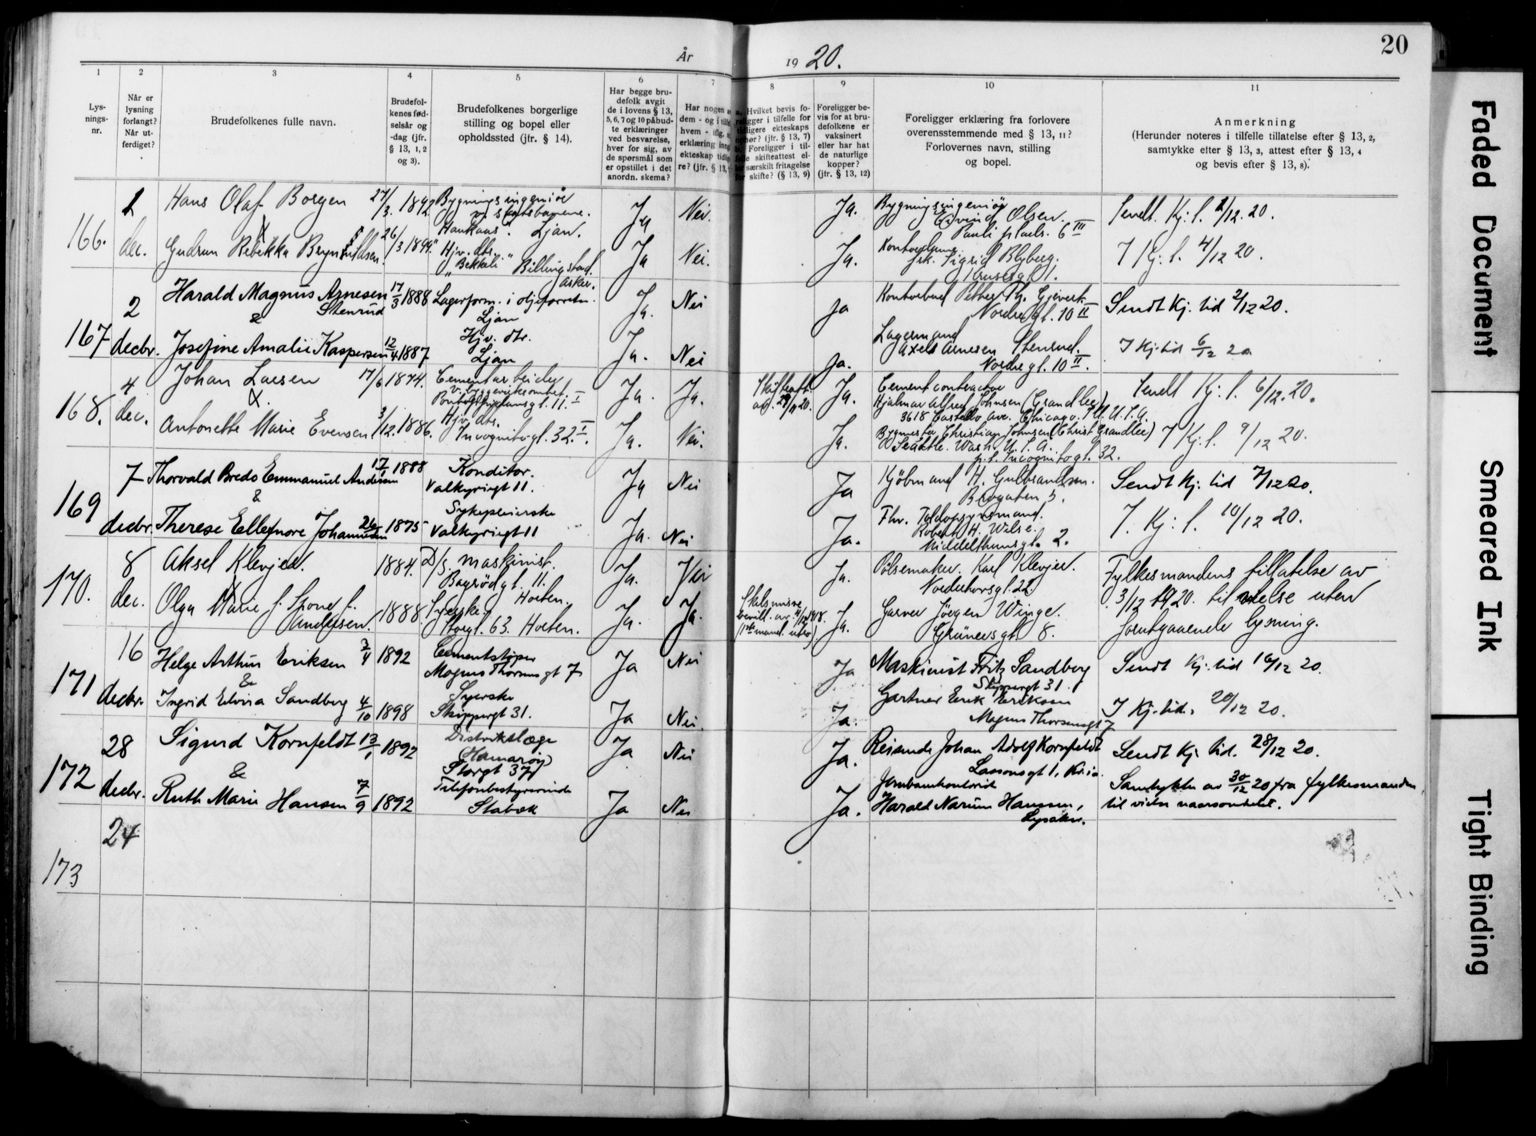 20
År 1920.
1 2 3 4 5 6 7 8 9 10 11
Lys-
nings-
nr.
Når er
lysning
forlangt?
Når ut-
ferdiget?
Brudefolkenes fulle navn.
Brudefol-
kenes fød-
selsår og
-dag (jfr.
§ 13, 1, 2
og 3).
Brudefolkenes borgerlige
stilling og bopel eller
opholdssted (jfr. § 14).
Har begge bru-
defolk avgit
de i lovens § 13,
5, 6, 7 og 10 påbud-
te erklæringer
ved besvarelse,
hver for sig, av
de spørsmål som
er opstillet i det
anordn. skema?
Har nogen a
dem - og i tilfe
hvem - iflg. e
erklæring inng
ekteskap tidlig
re? (jfr. § 13,
Hvilket bevis fo-
religger i tilfelle for
tidligere ekteskaps
ophør? (jfr. § 13, 7)
Foreligger i til-
felle skifteattest el-
særskilt fritagelse
skifte? (§ 13, 9)
Foreligger be-
vis for at bru-
defolkene er
vaksinert
eller har hat
de naturlige
kopper?
(jfr. § 13, 12)
Foreligger erklæring fra forlovere
overensstemmende med § 13, 11?
Forlovernes navn, stilling
og bopel.
Anmerkning
(Herunder noteres i tilfelle tillatelse efter § 13, 2,
samtykke efter § 13, 3, attest efter § 13, 4
og bevis efter § 13, 8).
166. 1 dec.
Hans Olaf Borgen 27/3 1892 Bygningsingeniør
v. statsbanene.
"Haukaas". Ljan. Ja Nei Ja. Bygningsingeniør
Eyvind Olsen
Pauli plads. 6 III Sendt Kj. l. 2/12. 20.
Gudrun Rebekka Brynhildsen 26/3 1894 Hjv. dtr.
"Bekkeli" Billingstad.
Asker. Ja Nei. Ja. Kontordame
frk. Sigrid Blyberg.
I Kj. l. 4/12 20.
167 2 decbr.
Harald Magnus Arnesen
Stenrud 17/3 1888 Lagerform. i oljeforretn.
Ljan Ja. Nei Ja Kontorbud Petter
Nordregt. 10 II Sendt Kj. tid 2/12 20.
&
Josefine Amalie Kaspersen 12/4 1887 Hjv. dtr.
Ljan Ja. Nei Ja. Lagermand
Axel Arnesen Stenrud.
Nordregt. 10 II. I Kj. tid 6/12 20
168. 4 dec.
Johan Larsen 17/6 1874. Cementarbeider
11. I Ja. Ja. Skifteatt.
av 29/11 20. Ja. Cementcontractor
Hjalmar Alfred Johnsen (Grandlee)
3618 Cortello Ave. Chicago. Ill. U.S.A. Sendt Kj. l. 6/12. 20.
Antonette Marie Evensen 3/12 1886. Hjv. dtr.
Incognitogt. 32. I Ja. Nei. Ja. Bygmester Christian Johnsen (Christ Grandlee)
Seattle. Wash. U.S.A.
p.t. Incognitogt. 32. I Kj. l. 9/12 20.
169 7 decbr.
Thorvald Bredo Emmanuel Andersen 17/1 1888 Konditor.
Valkyriegt 11. Ja Nei Ja Kjøbmand H. Gulbrandsen.
Brogaten 3. Sendt Kj. tid 7/12 20.
&
Therese Ellefnore Johannesen 26/ 1875 Sykepleierske
Valkyriegt 11 Ja. Nei Ja. Fhv. Toldopsynsmand.
Robert H. Wilse.
Middelthunsgt. 2. I. Kj. l. 10/12 20.
170. 8 dec.
Aksel Klevjer. 1884. D/s. maskinist.
Bagrødgt. 11.
Horten. Ja. Nei Ja. Pølsemaker Karl Klevjer.
Nordahlsgt. 22 Fylkesmandens tillatelse av
3/12 1920. til vielse uten
forutgaaende lysning.
Olga Marie f. Andersen. 1888 Syerske
Storgt. 63. Horten. Ja. Ja. Skilsmisse
bevill. av 4/12 1918.
Ja. Garver Jørgen Winge.
Grünersgt. 8.
171 16 decbr.
Helge Arthur Eriksen 3/4 1892 Cementstøper
Magnus Thornes gt 7 Ja Nei Ja Maskinist Fritz Sandberg
Skippergt 31. Sendt Kj. tid 16/12 20.
&
Ingrid Elvira Sandberg 4/10 1898 Syerske
Skippergt 31. Ja Nei. Ja. Gartner Erik Eriksen
Magnus Thornesgt 7 I Kj. tid. 20/12 20.
172 28 decbr.
Sigurd Kornfeldt 13/1 1892 Distriktslæge
(Hamarøy)
Storgt 37 Ja Nei Ja. Reisende Johan Adolf Kornfeldt
Lassonsgt 1, Kr.ia. Sendt Kj. tid. 28/12 20.
&
Ruth Marie Hansen 7/9 1892 Telefonbestyrerinde
Stabæk Ja Nei Ja. Jernbanekontorist
Harald Narum Hanssen,
Lysaker. Samtykke av 30/12 20 fra fylkesmanden
til vielse
173 24
Faded Document
Smeared Ink
Tight Binding